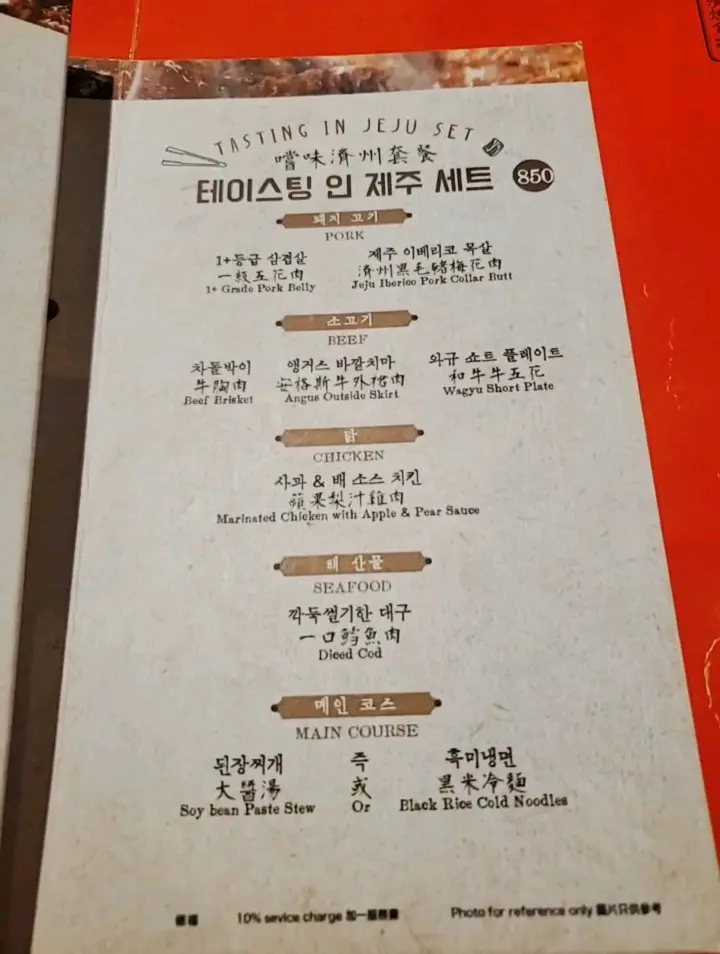 TASTING IN JEJU SET
嚐味濟州套餐
테이스팅 인 제주 세트 850
돼지 고기
PORK
1+등급 삼겹살 제주 이베리코 목살
一級五花肉 濟州黑毛豬梅花肉
1+ Grade Pork Belly Jeju Iberico Pork Collar Butt
소고기
BEEF
차돌박이 앵거스 바깥치마 와규 쇼트 플레이트
牛胸肉 安格斯牛外裙肉 和牛牛五花
Beef Brisket Angus Outside Skirt Wagyu Short Plate
닭
CHICKEN
사과 & 배 소스 치킨
蘋果梨汁雞肉
Marinated Chicken with Apple & Pear Sauce
해 산물
SEAFOOD
깍둑썰기한 대구
一口鱈魚肉
Diced Cod
메인 코스
MAIN COURSE
된장찌개 즉 흑미냉면
大醬湯 或 黑米冷麵
Soy bean Paste Stew Or Black Rice Cold Noodles
10% sevice charge 加一服務費 Photo for reference only 圖片只供參考